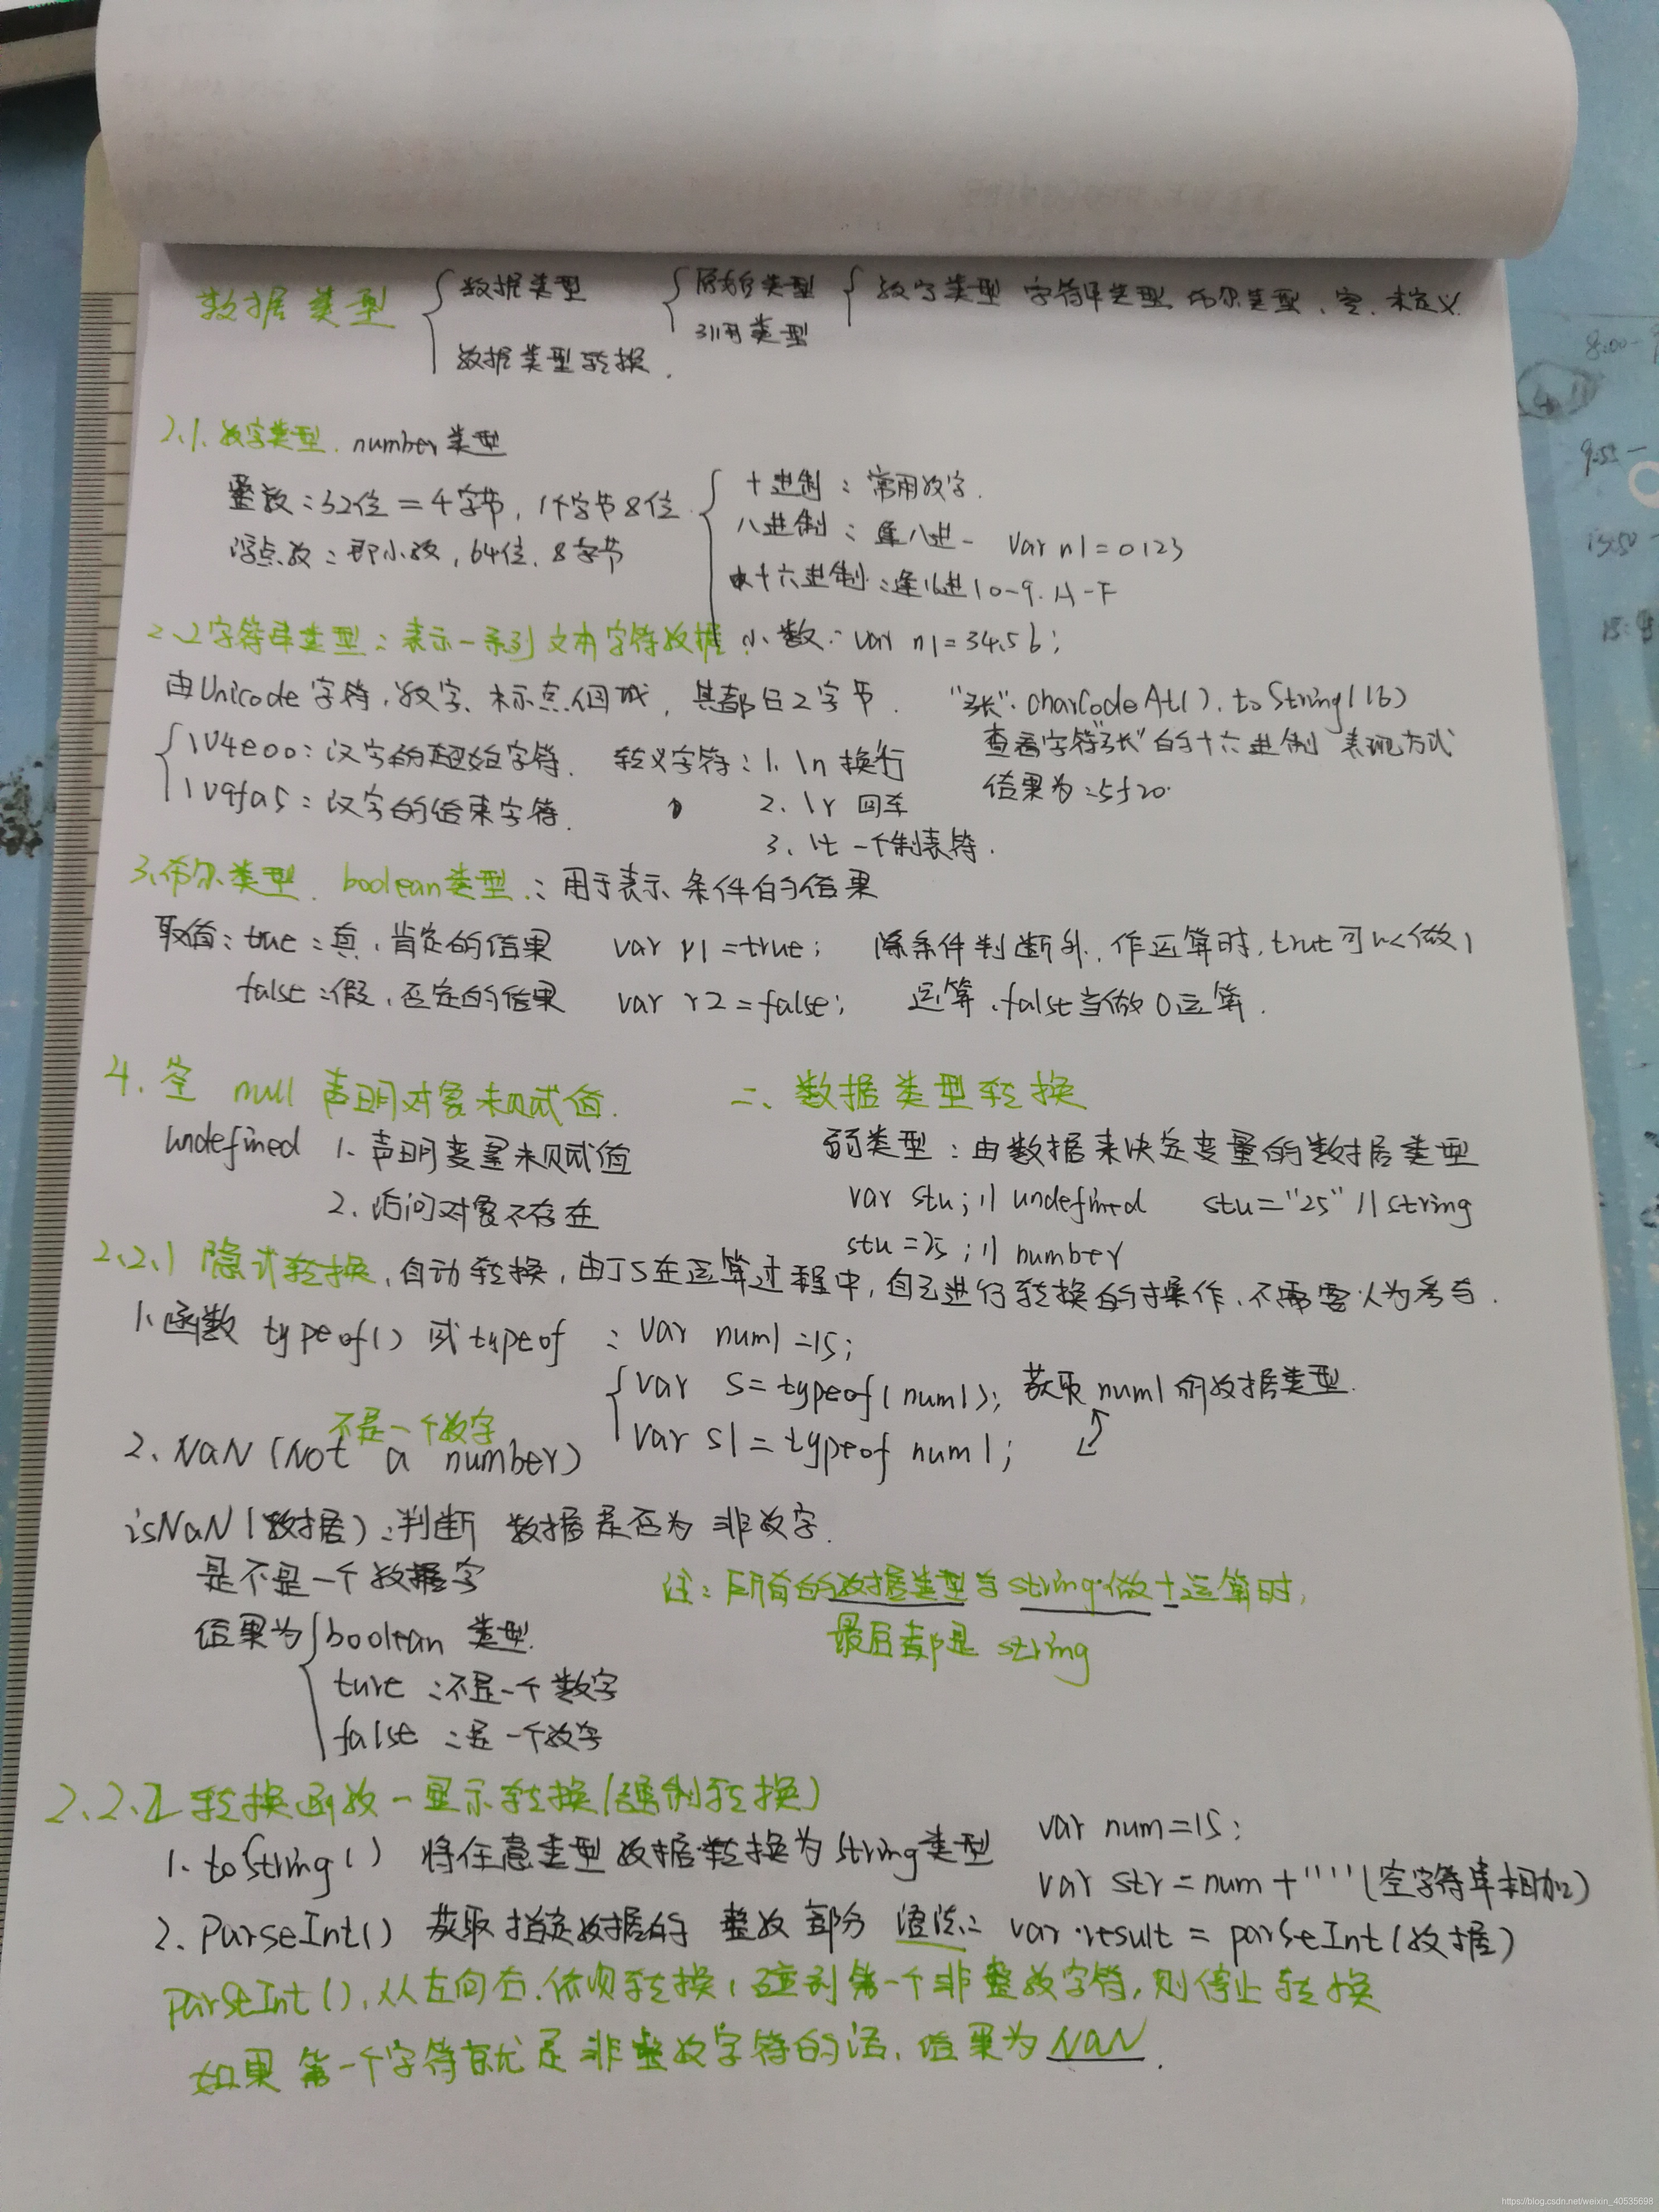 数据类型 { 数据类型 { 原始类型 { 数字类型 字符串类型 布尔类型、空、未定义
引用类型
数据类型转换.
2.1. 数字类型. number类型
整数:32位=4字节, 1个字节8位
浮点数:即小数, 64位. 8字节
十进制: 常用数字.
八进制: 逢八进一 var n1=0123
十六进制:逢16进1 0-9. A-F
小数: var n1=34.56;
2.2字符串类型:表示一系列文本字符数据
由Unicode字符,数字、标点组成, 其都占2字节.
"张".charCodeAt().toString(16)
查看字符"张"的十六进制 表现方式
结果为:5f20.
{ \u4e00:汉字的起始字符.
\u9fa5:汉字的结束字符.
转义字符:1. \n 换行
2. \r 回车
3. \t 一个制表符.
3.布尔类型. boolean类型.:用于表示条件的结果
取值:true:真,肯定的结果 var r1=true; 除条件判断外,作运算时,true可以做1
false:假,否定的结果 var r2=false; 运算,false当做0运算.
4. 空 null 声明对象未赋值.
undefined 1. 声明变量未赋值
2. 访问对象不存在
二、数据类型转换
弱类型:由数据来决定变量的数据类型
var stu;// undefined stu="25" //string
stu=25;// number
2.2.1 隐式转换,自动转换,由JS在运算过程中,自己进行转换的操作,不需要人为参与.
1.函数 typeof() 或typeof : var num1=15;
{ var s=typeof(num1); 获取num1的数据类型.
var s1=typeof num1;
不是一个数字
2. NaN (Not a number)
isNaN(数据):判断 数据是否为 非数字.
是不是一个数字
结果为{boolean 类型.
ture:不是一个数字
false:是一个数字
注:所有的数据类型与string做+运算时,
最后都是 string
2.2.2 转换函数-显示转换(强制转换)
1. toString() 将任意类型数据转换为string类型
var num=15;
var str=num+""(空字符串相加)
2. ParseInt() 获取指定数据的 整数部分 语法: var result = parseInt(数据)
ParseInt(),从左向右.依次转换,碰到第一个非整数字符,则停止转换
如果第一个字符就是非整数字符的话,结果为NaN.
8:00-
9:55-
15:50-
https://blog.csdn.net/weixin_40535698